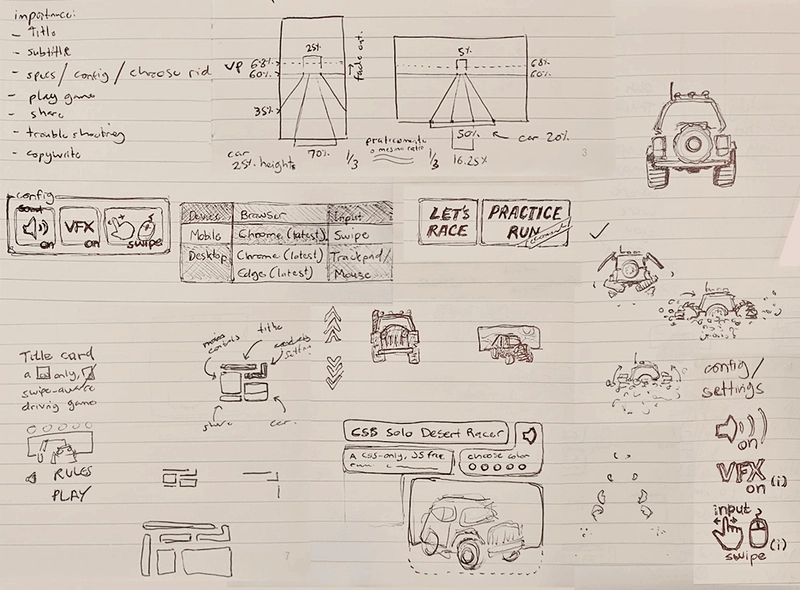 importance:
- Title
- subtitle
- specs/config/choose rid
- play game
- share
- trouble shooting
- copywrite
25%
VP 68%
60%
35%
car
25% heights
70%
1/3
fade out.
praticamente
o mesmo ratio
1/3
5%
68%
60%
50%
car 20%
16.25%
3
config
sound
on
VFX
on
swipe
Device Browser Input
Mobile Chrome (latest) Swipe
Desktop Chrome (latest) Trackpad/
Edge (latest) Mouse
LET'S
RACE
PRACTICE
RUN
Title card
a only,
swipe-aware
driving game
RULES
PLAY
title
main
controls
share
car.
CSS Solo Desert Racer
A CSS-only, JS free
choose color
config/
settings
on
VFX
on (i)
input
swipe (i)
7